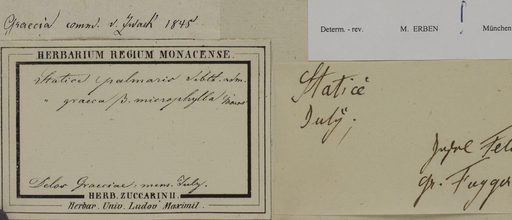 Graecia comm. v. Zwack 1845
Determ. - rev. M. ERBEN München
HERBARIUM REGIUM MONACENSE.
Statice palmaris Sibth.
" graeca β. microphylla Boiss
Delos Graeciae. mens. July.
HERB. ZUCCARINII
Herbar. Univ. Ludov. Maximil.
Statice
July.
Insel
Gr. Fugger